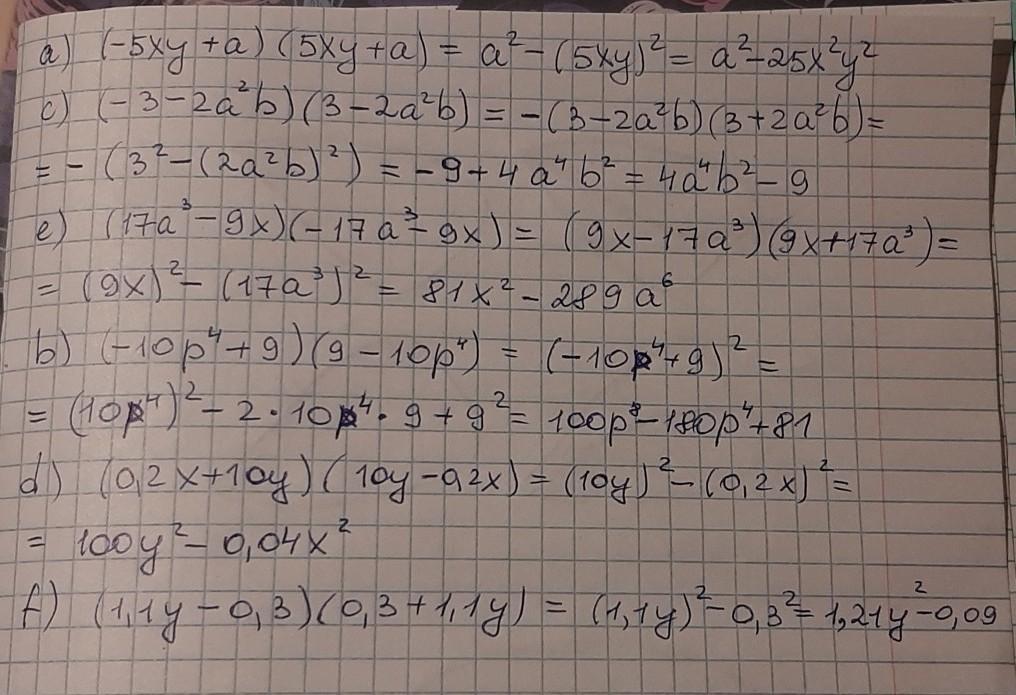 a) (-5xy + a) (5xy + a) = a² - (5xy)² = a² - 25x²y²
c) (-3 - 2a²b)(3 - 2a²b) = -(3 - 2a²b)(3 + 2a²b) =
= - (3² - (2a²b)²) = -9 + 4a⁴b² = 4a⁴b² - 9
e) (17a³ - 9x)(-17a³ - 9x) = (9x - 17a³)(9x + 17a³) =
= (9x)² - (17a³)² = 81x² - 289a⁶
b) (-10p⁴ + 9)(9 - 10p⁴) = (-10p⁴ + 9)² =
= (10p⁴)² - 2 · 10p⁴ · 9 + 9² = 100p⁸ - 180p⁴ + 81
d) (0,2x + 10y) (10y - 0,2x) = (10y)² - (0,2x)² =
= 100y² - 0,04x²
f) (1,1y - 0,3)(0,3 + 1,1y) = (1,1y)² - 0,3² = 1,21y² - 0,09